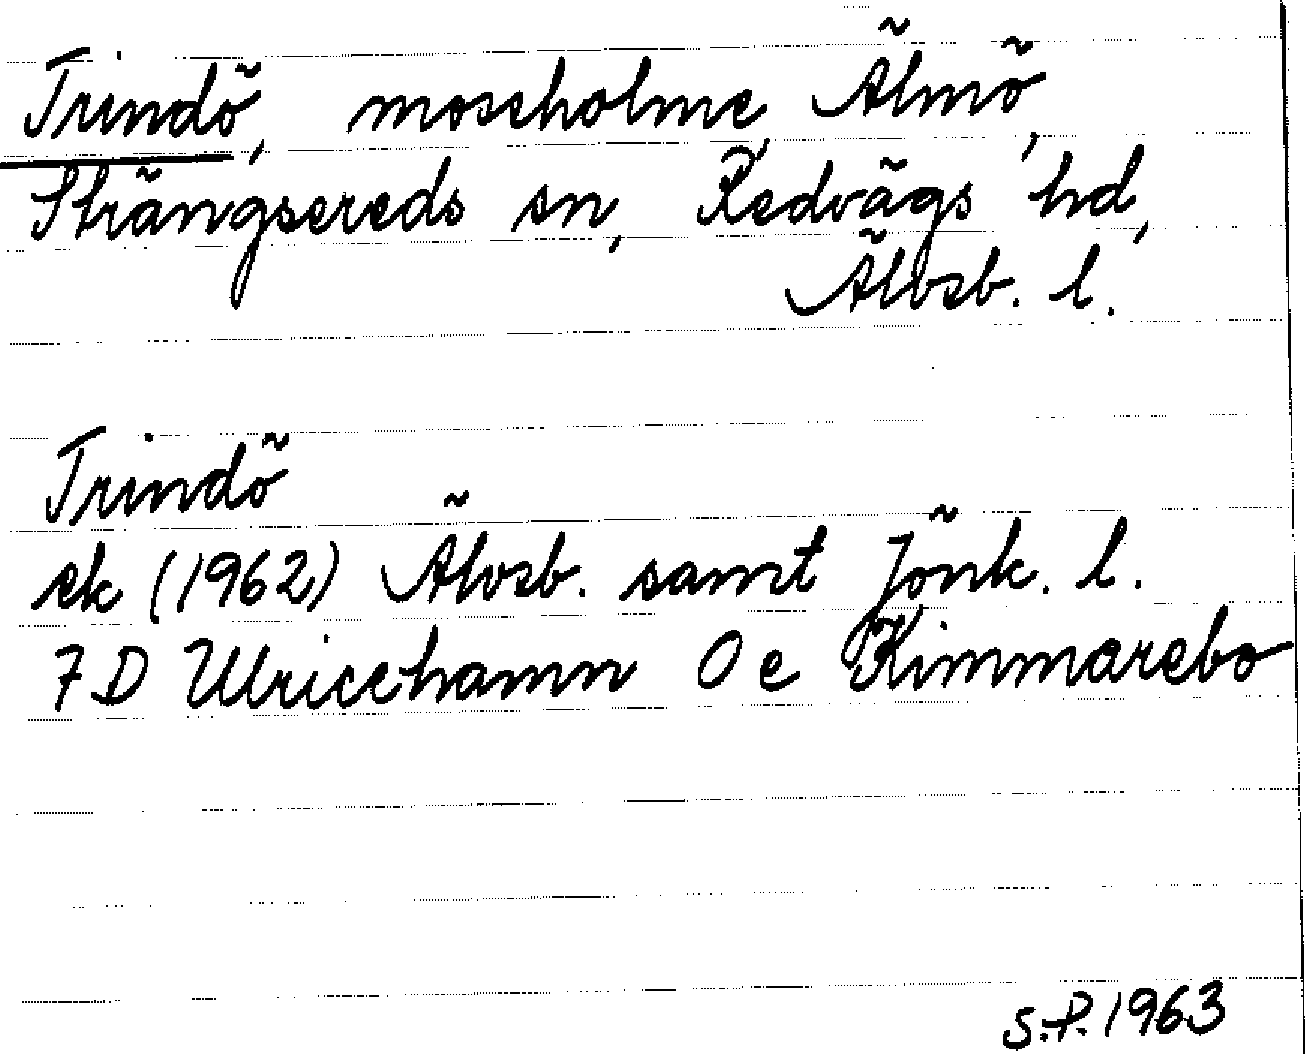 Trindö, moseholme, Älmö,
Strängsereds sn, Redvägs hd,
Älvsb. l.
Trindö
ek (1962) Älvsb. samt Jönk. l.
7D Ulricehamn 0e Kimmarebo
S.P. 1963